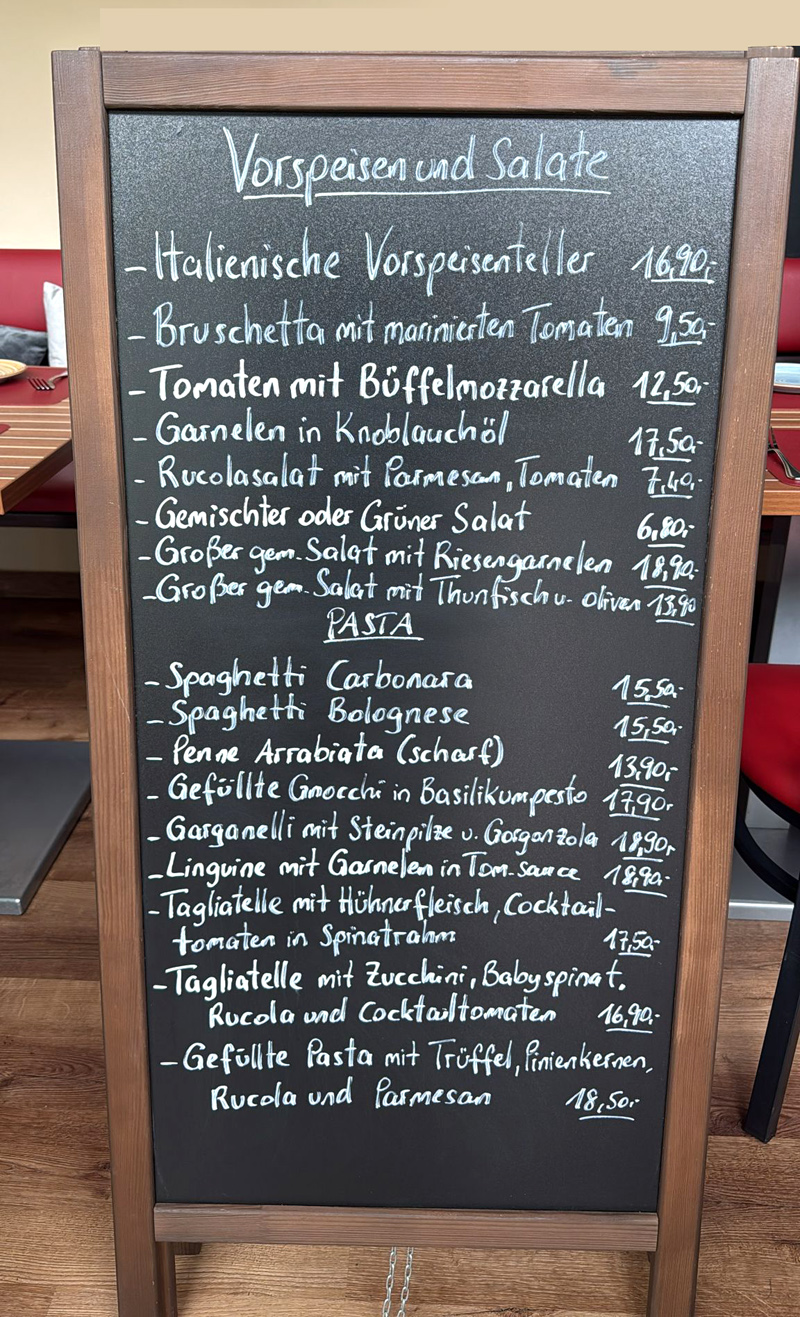 Vorspeisen und Salate
- Italienische Vorspeisenteller 16,90,-
- Bruschetta mit marinierten Tomaten 9,50,-
- Tomaten mit Büffelmozzarella 12,50,-
- Garnelen in Knoblauchöl 17,50,-
- Rucolasalat mit Parmesan, Tomaten 7,40,-
- Gemischter oder Grüner Salat 6,80,-
- Großer gem. Salat mit Riesengarnelen 18,90,-
- Großer gem. Salat mit Thunfisch u. oliven 13,90
PASTA
- Spaghetti Carbonara 15,50,-
- Spaghetti Bolognese 15,50,-
- Penne Arrabiata (scharf) 13,90,-
- Gefüllte Gnocchi in Basilikumpesto 17,90,-
- Garganelli mit Steinpilze u. Gorgonzola 18,90,-
- Linguine mit Garnelen in Tom-sauce 18,90,-
- Tagliatelle mit Hühnerfleisch, Cocktail-
tomaten in Spinatrahm 17,50,-
- Tagliatelle mit Zucchini, Babyspinat.
Rucola und Cocktailtomaten 16,90,-
- Gefüllte Pasta mit Trüffel, Pinienkernen,
Rucola und Parmesan 18,50,-